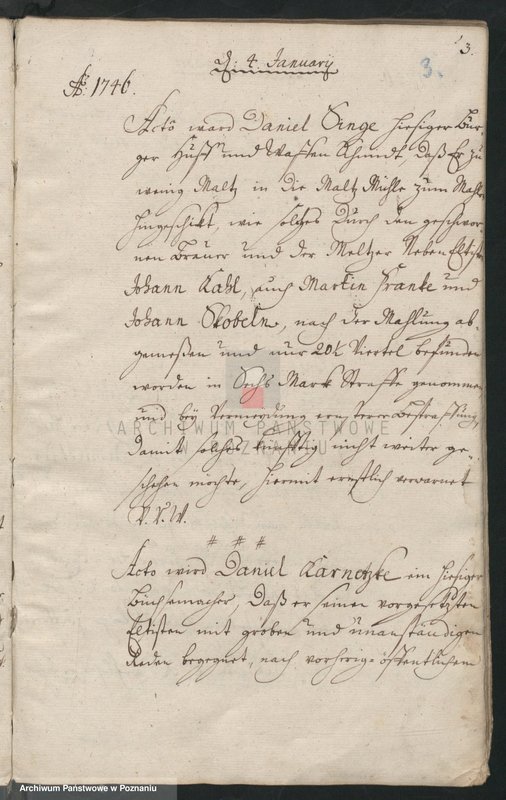 3.
d. 4. January
3.
Aõ 1746.
Acto ward Daniel Singe hiesiger Bür-
ger Huff und Waffen Schmidt, daß Er zu
wenig Maltz in die Maltz Mühle zum Mahlen
hingeschikt, wie solches durch den geschwor-
nen Brauer und der Meltzer Neben Eltisten
Johann Kahl, auch Martin Franke und
Johann Skobeln, nach der Mahlung ab-
gemeßen und nur 20½ Viertel befunden
worden in Sechs Mark Straffe genommen
und bey Vermeydung ernsterer Bestraffung,
damit solches künfftig nicht weiter ge-
schehen möchte, hiermit ernstlich verwarnet
V. R. W.
# # #
Acto wird Daniel Karnetzke ein hiesiger
Büchsenmacher, daß er seinen vorgesetzten
Eltisten mit groben und unanständigen
Reden begegnet, nach vorherig öffentlichem
ARCHIWUM PAŃSTWOWE
W POZNANIU
Archiwum Państwowe w Poznaniu